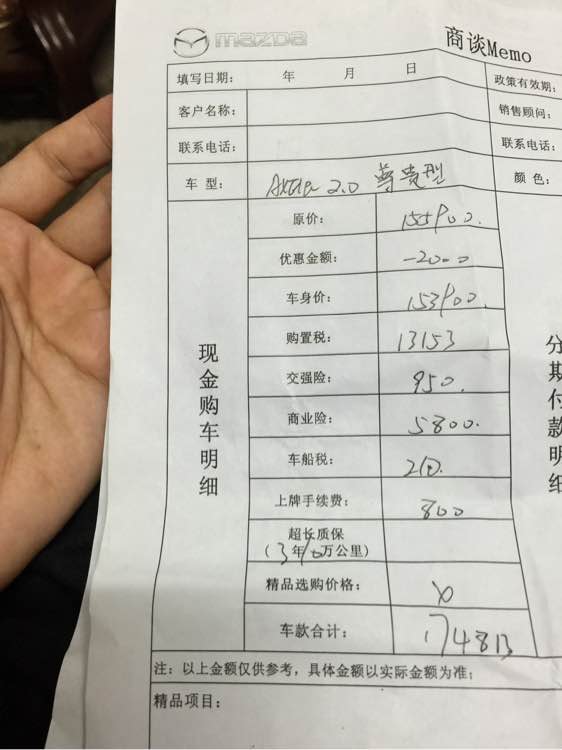 mazda
商谈Memo
填写日期: 年 月 日 政策有效期:
客户名称: 销售顾问:
联系电话: 联系电话:
车 型: Axela 2.0 尊贵型 颜 色:
现金购车明细
原价: 155900.
优惠金额: -2000
车身价: 153900.
购置税: 13153
交强险: 950.
商业险: 5800.
车船税: 210.
上牌手续费: 800
超长质保
(3年/10万公里)
精品选购价格:
车款合计: 174813
分期付款明细
注: 以上金额仅供参考, 具体金额以实际金额为准;
精品项目: